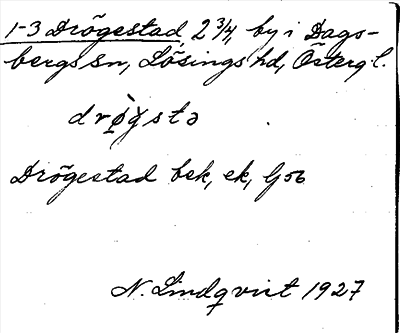 1-3 Drögestad, 2 3/4, by i Dags-
bergs sn, Lösings hd, Österg l.
Drögestad bek, ek, G56
N. Lindqvist 1927